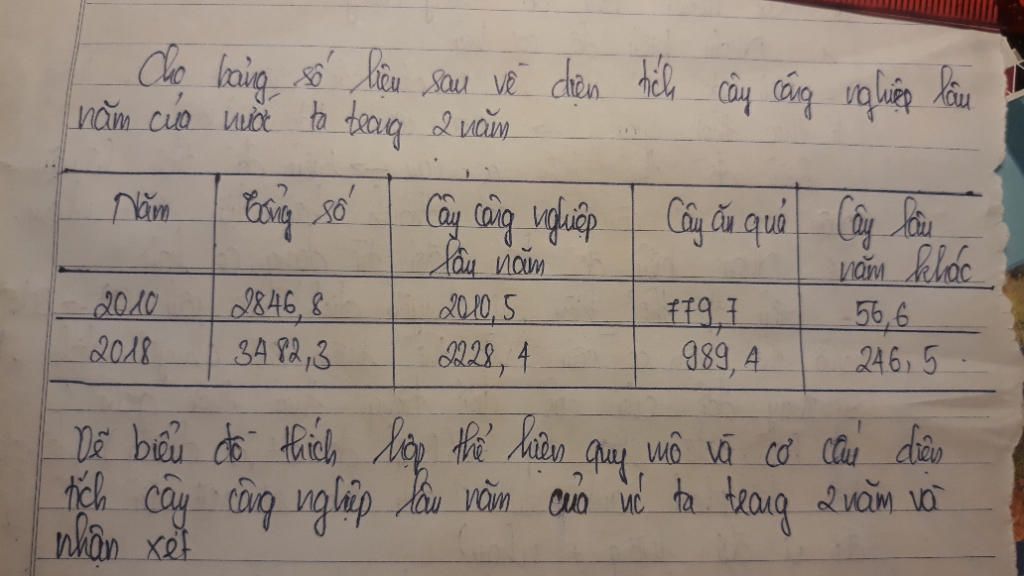 Cho bảng số liệu sau về diện tích cây công nghiệp lâu
năm của nước ta trong 2 năm
Năm Tổng số Cây công nghiệp lâu năm Cây ăn quả Cây lâu năm khác
2010 2846,8 2010,5 779,7 56,6
2018 3482,3 2228,4 989,4 246,5
Vẽ biểu đồ thích hợp thể hiện quy mô và cơ cấu diện
tích cây công nghiệp lâu năm của nc ta trong 2 năm và
nhận xét